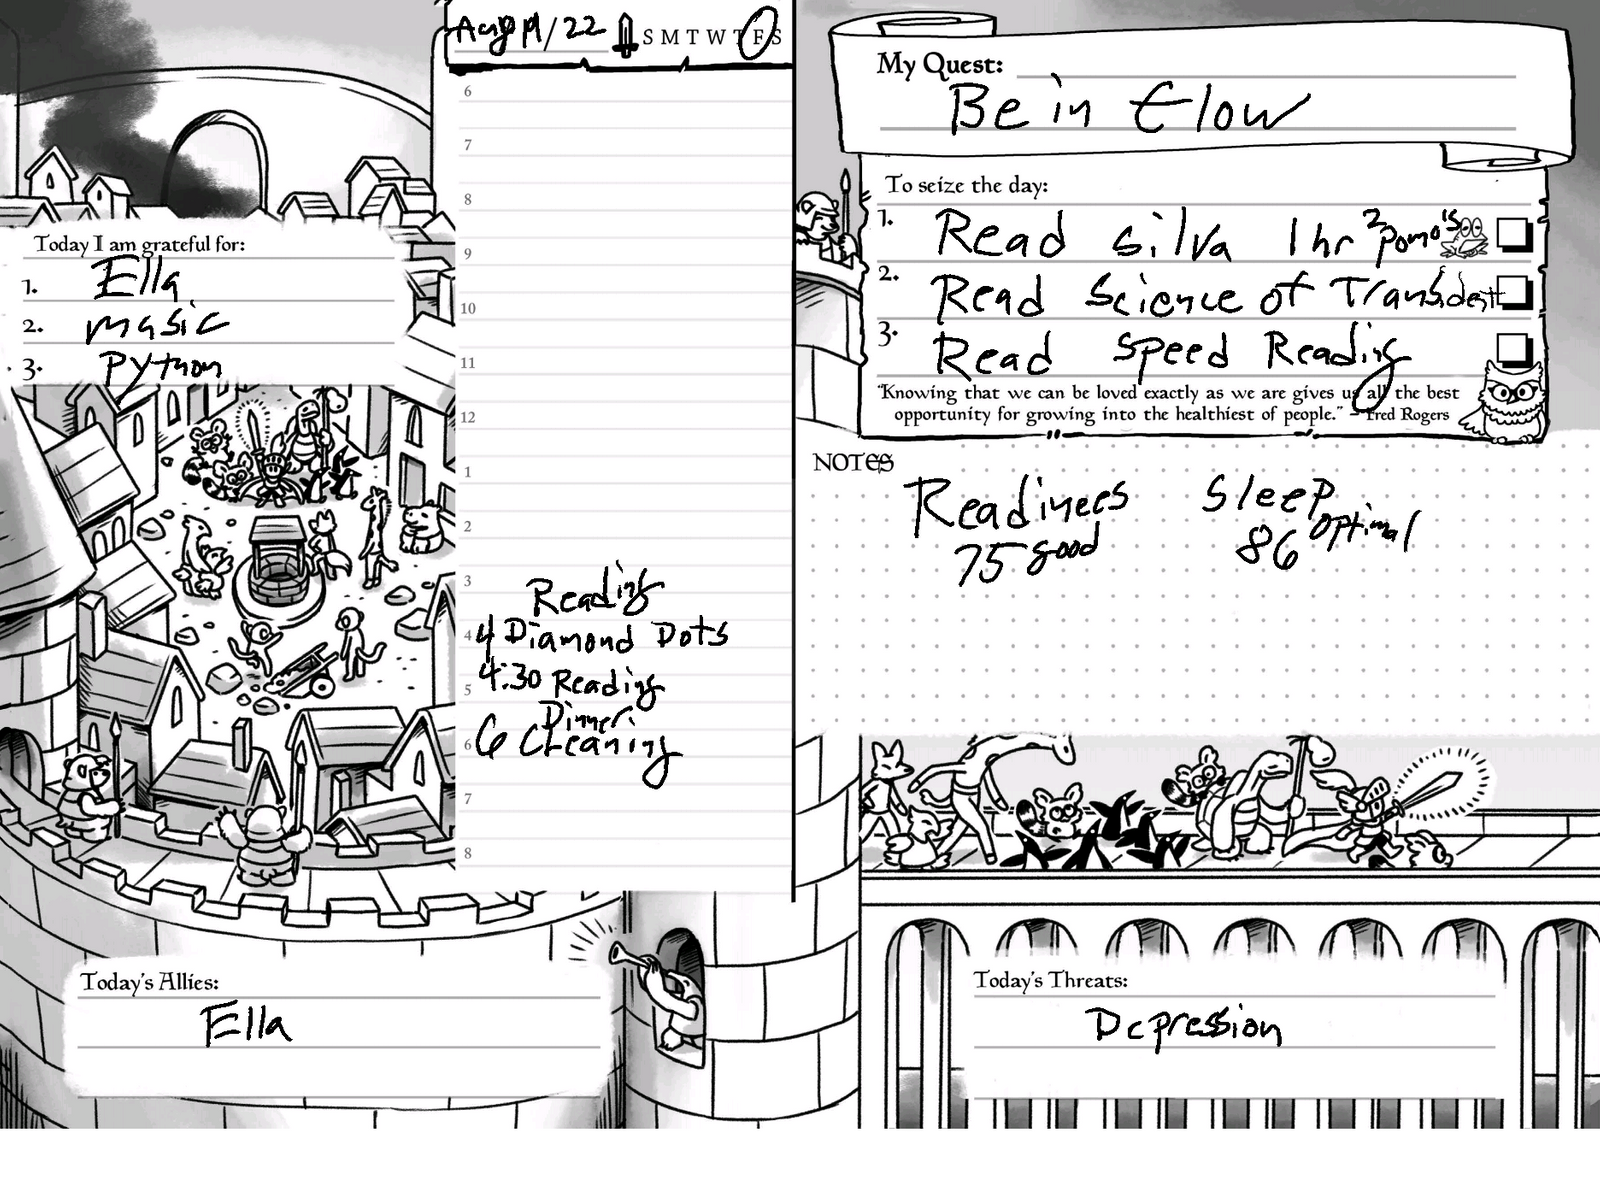 Aug 19/22 S M T W T F S
6
7
8
9
10
11
12
1
2
3
Reading
4 4 Diamond Dots
4:30 Reading
5
Dinner
6 6 Cleaning
7
8
Today I am grateful for:
1. Ella
2. music
3. Python
Today's Allies:
Ella
My Quest:
Be in flow
To seize the day:
1. Read silva 1hr 2 pomo's
2. Read Science of
3. Read Speed Reading
"Knowing that we can be loved exactly as we are gives us all the best
opportunity for growing into the healthiest of people." – Fred Rogers
NOTES
Readinees Sleep
75 good 86 optimal
Today's Threats:
Depression